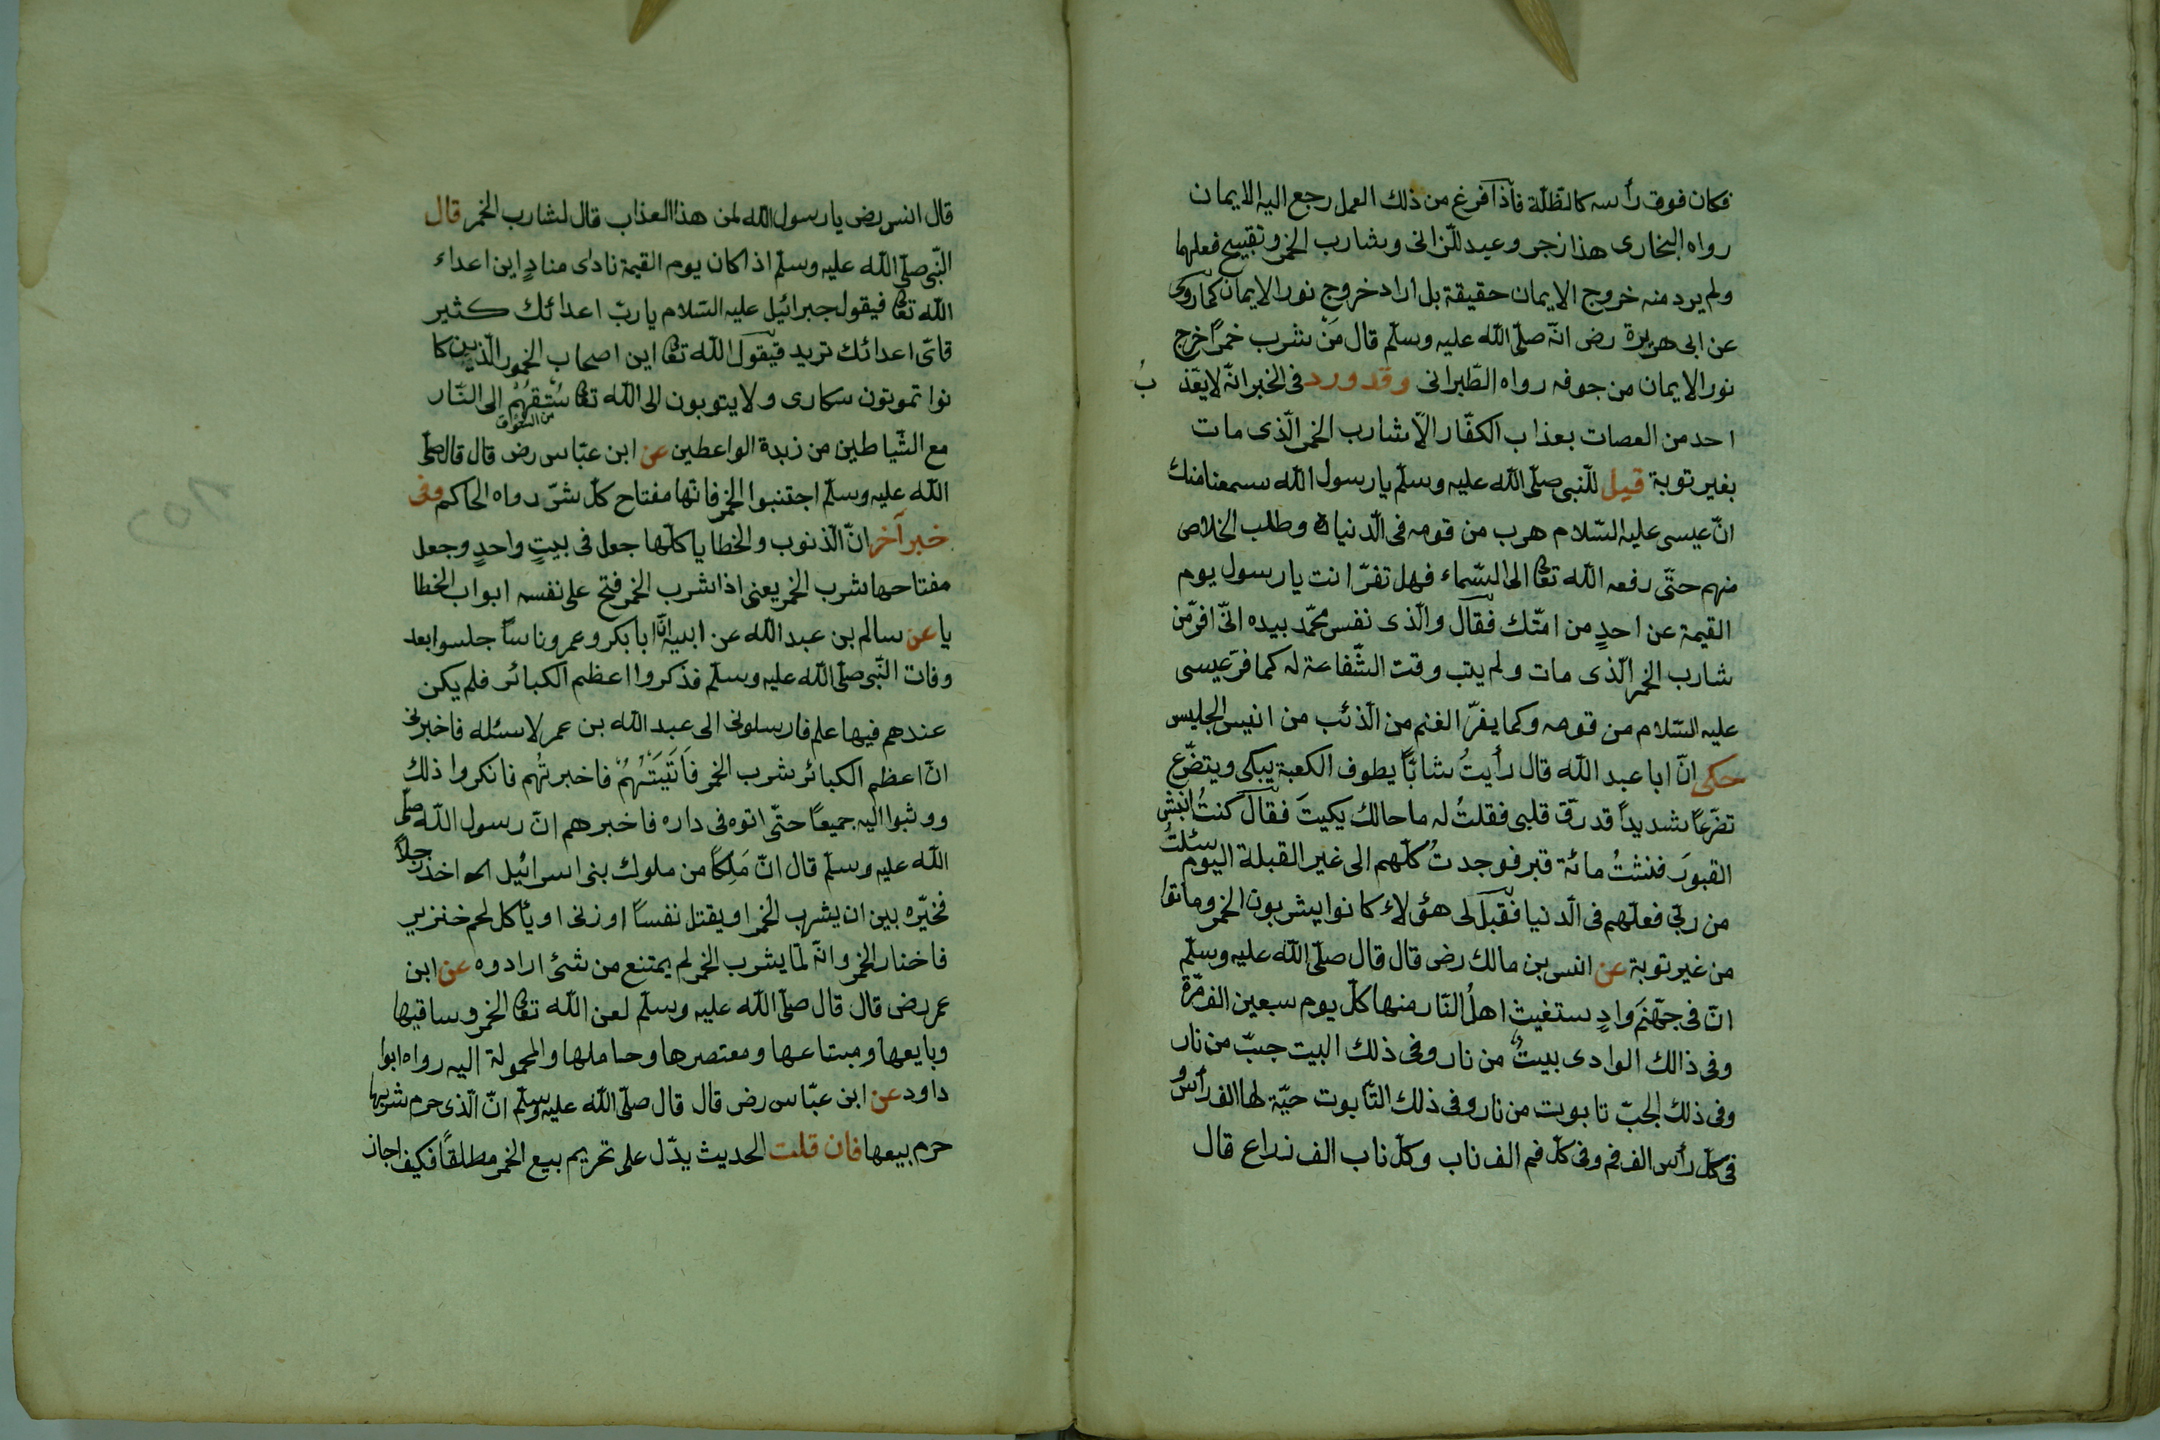 فكان فوق رأسه كالظّلّة فاذا فرغ من ذلك العمل رجع اليه الايمان
رواه البخارى هذا زجر وعيد للّزانى وشارب الخمر وتقبيح فعلهما
ولم يرد منه خروج الايمان حقيقة بل اراد خروج نور الايمان كما روى
عن ابى هريرة رض انّه صلّى الله عليه وسلّم قال مَنْ شرب خمرًا خرج
نور الايمان من جوفه رواه الطّبرانى وقد ورد فى الخبر انّه لا يعّذ بُ
احد من العصات بعذاب الكفّار الّا شارب الخمر الّذى مات
بغير توبة قيل للّنبى صلّى الله عليه وسلّم يا رسول الله سمعنا منك
انّ عيسى عليه السّلام هرب من قومه فى الّدنيا وطلب الخلاص
منهم حتّى رفعه الله تعالى الى السّماء فهل تفرّ انت يا رسول يوم
القيمة عن احدٍ من امّتك فقال والّذى نفس محمّد بيده انّى افرّ من
شارب الخمر الّذى مات ولم يتب وقت الشّفاعة له كما فرّ عيسى
عليه السّلام من قومه وكما يفرّ الغنم من الّذئب من انيس الجليس
حكى انّ ابا عبد الله قال رأيتُ شابّاً يطوف الكعبة يبكى ويتضّرع
تضّرعاً شديداً قد رقّ قلبى فقلتُ له ما حالك يكيتَ فقال كنتُ انبش
القبورَ فنشتُ مائة قبر فوجدتُ كلّهم الى غير القبلة اليوم سئلتُ
من ربّى فعلّهم فى الّدنيا فقبل لى هؤلاء كانوا يشربون الخمر وماتوا
من غير توبة عن انس بن مالك رض قال قال صلّى الله عليه وسلّم
انّ فى جهّنم وادٍ ستغيث اهلُ النّار منها كلّ يوم سبعين الف مّرة
وفى ذالك الوادى بيتٌ من نار وفى ذلك البيت جبّ من نار
وفى ذلك الجبّ تابويت من نار وفى ذلك التّابوت حيّة لها الف رأس و
فى كلّ رأس الف فم وفى كلّ فم الف ناب وكلّ ناب الف نراع قال
قال انس رض يا رسول الله لمن هذا العذاب قال لشارب الخمر قال
النّبى صلّى الله عليه وسلّم اذا كان يوم القيمة نادى منادٍ اين اعداء
الله تعالى فيقول جبرائيل عليه السّلام يا ربّ اعدائك كثير
فائّ اعدائك تريد فيقول الله تعالى اين اصحاب الخمور الّذين كا
نوا تموتون سكارى ولا يتوبون الى الله تعالى سُتقهُمُ الى النّار
مع الشّياطين من زبدة الواعظين عن ابن عبّاس رض قال قال صلّى
الله عليه وسلّم اجتنبوا الخمر فانّها مفتاح كلّ شرّ رواه الحاكم وفى
خبر آخر انّ الّذنوب والخطايا كلّها جعل فى بيتٍ واحدٍ وجعل
مفتاحها شرب الخمر يعنى اذا شرب الخمر فتح على نفسه ابواب الخطا
يا عن سالم بن عبد الله عن ابيه انّ ابا بكر وعمر وناساً جلسوا بعد
وفات النّبى صلّى الله عليه وسلّم فذكروا اعظم الكبائر فلم يكن
عندهم فيها علم فارسلونى الى عبد الله بن عمر لاسئله فاخبرنى
انّ اعظم الكبائر شرب الخمر فاَتَيَتْهُمْ فاخبرتُهم فانكروا ذلك
ووثبوا اليه جميعًا حتّى اتوه فى داره فاخبرهم انّ رسول الله صلّى
الله عليه وسلّم قال انّ مَلِكاً من ملوك بنى اسرائيل اخذ رجلاً
فخيّره بين ان يشرب الخمر او يقتل نفساً او زنى او يأكل لحم خنزير
فاختار الخمر وانّه لمّا يشرب الخمر لم يمتنع من شئ ارادوه عن ابن
عمر رض قال قال صلّى الله عليه وسلّم لعن الله تعالى الخمر وساقيها
وبايعها ومبتاعها ومعتصرها وحاملها والمحمولة اليه رواه ابوا
داود عن ابن عبّاس رض قال قال صلّى الله عليه وسلّم انّ الّذى حرم شربها
حرم بيعها فان قلت الحديث يدّل على تحريم بيع الخمر مطلقاً فكيف اجاز